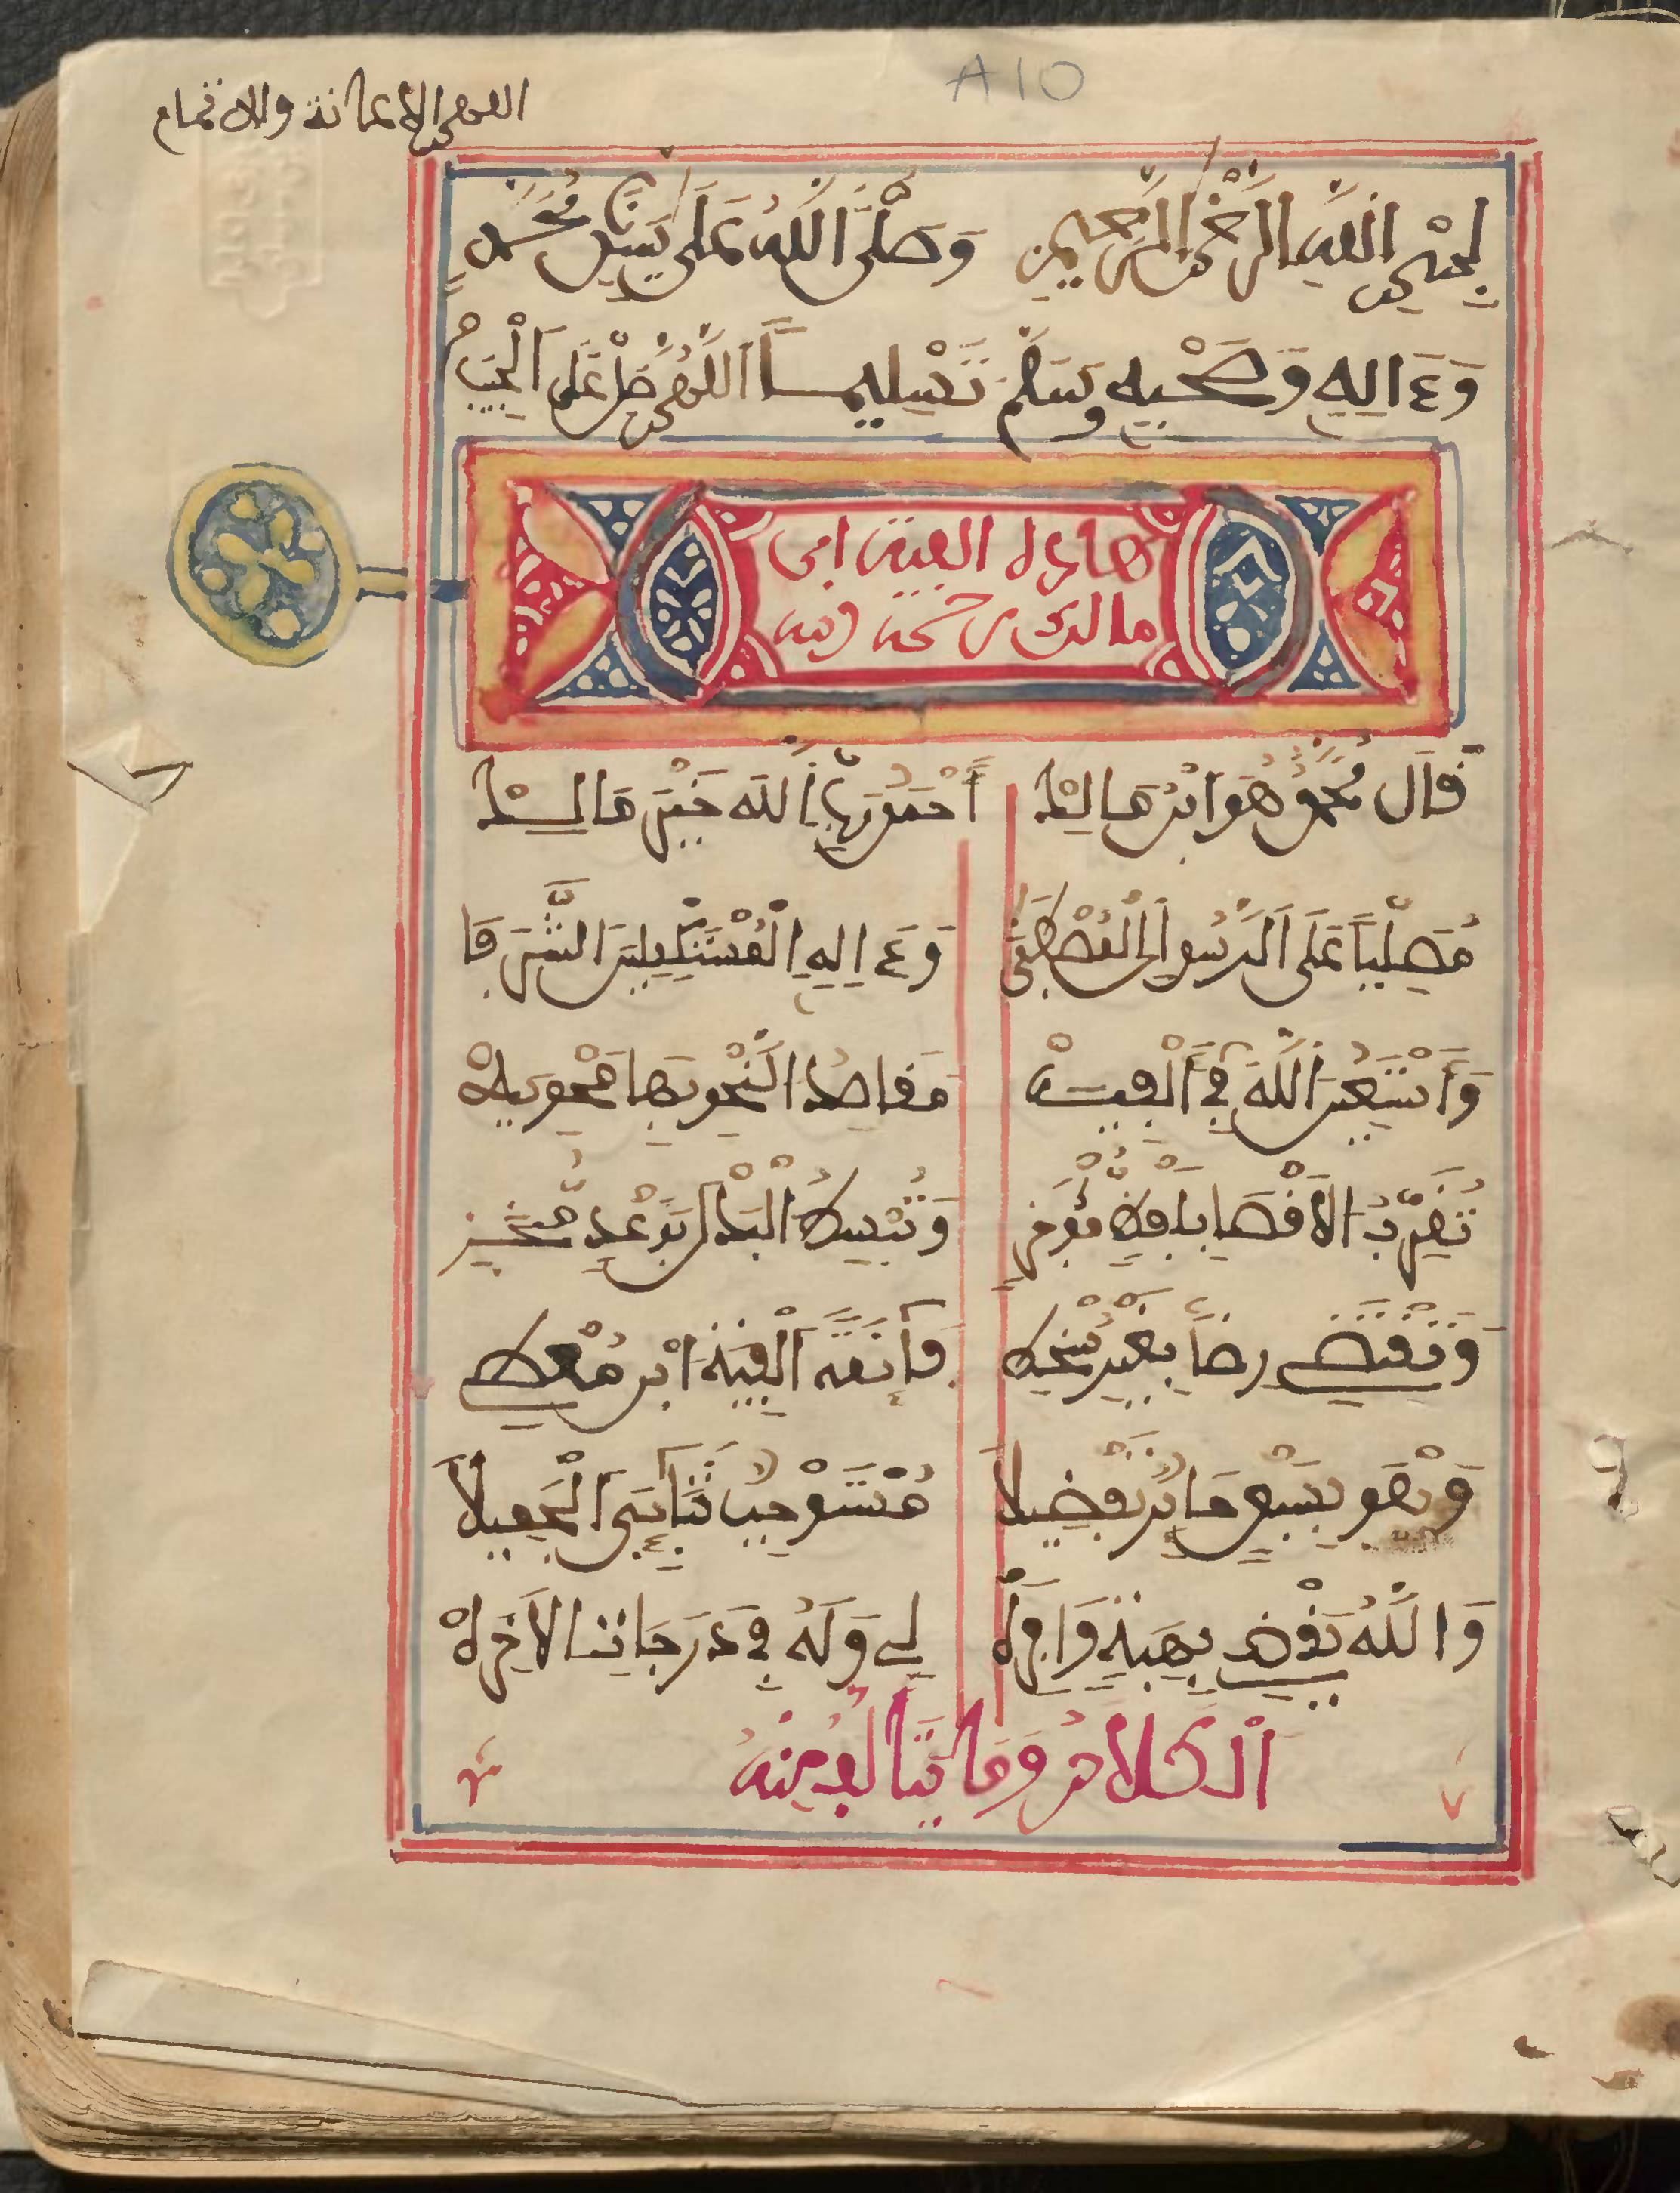 A10
اللهم الإعانة والاتمام
بسم الله الرحمن الرحيم وصلى الله على سيدنا محمد
وعلى اله وصحبه وسلم تسليما اللهم صل على الحبيب
هاذه الفية ابن
مالك رحمه الله
قال محمد هو ابن مالك أحمد ربي الله خير مالك
مصليا على الرسول المصطفى وءاله المستكملين الشرفا
وأستعين الله في ألفية مقاصد النحو بها محوية
تقرب الأقصى بلفظ موجز وتبسط البذل بوعد منجز
وتقتضي رضا بغير سخط فائقة ألفية ابن معطي
وهو بسبق حائز تفضيلا مستوجب ثنائي الجميلا
والله يقضي بهبات وافره لي وله في درجات الآخره
الكلام وما يتألف منه